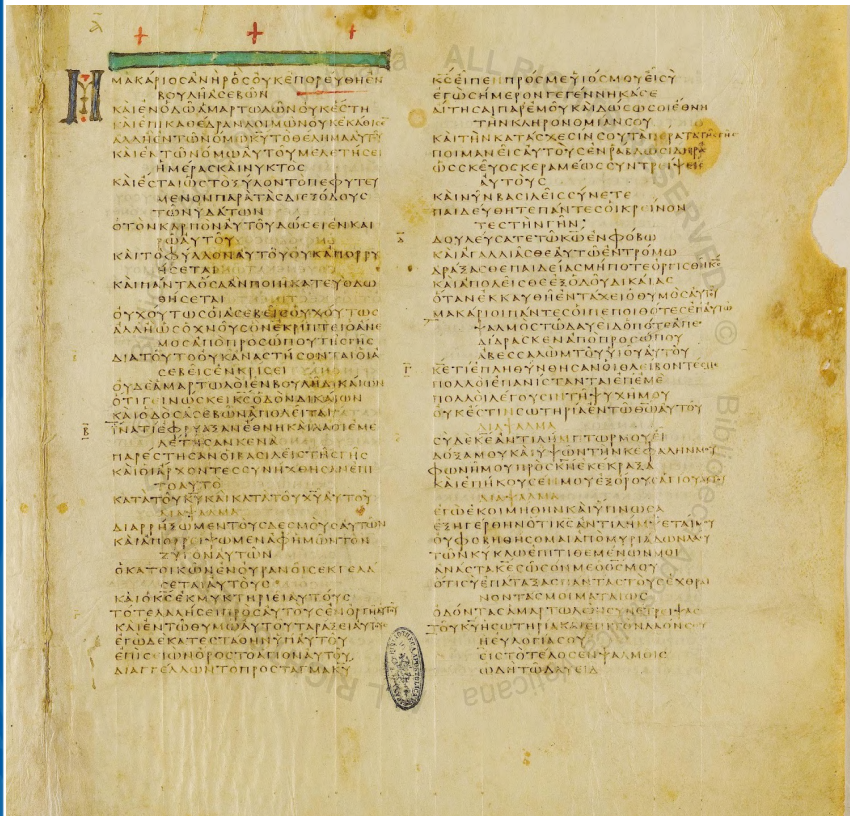 ΜΑΚΑΡΙΟΣΑΝΗΡΟΣΟΥΚΕΠΟΡΕΥΘΗΕΝ
ΒΟΥΛΗΑΣΕΒΩΝ
ΚΑΙΕΝΟΔΩΑΜΑΡΤΩΛΩΝΟΥΚΕΣΤΗ
ΚΑΙΕΠΙΚΑΘΕΔΡΑΝΛΟΙΜΩΝΟΥΚΕΚΑΘΙΣΕ
ΑΛΛΗΕΝΤΩΝΟΜΩΚΥΤΟΘΕΛΗΜΑΑΥΤΟΥ
ΚΑΙΕΝΤΩΝΟΜΩΑΥΤΟΥΜΕΛΕΤΗΣΕΙ
ΗΜΕΡΑΣΚΑΙΝΥΚΤΟΣ
ΚΑΙΕΣΤΑΙΩΣΤΟΞΥΛΟΝΤΟΠΕΦΥΤΕΥ
ΜΕΝΟΝΠΑΡΑΤΑΣΔΙΕΞΟΔΟΥΣ
ΤΩΝΥΔΑΤΩΝ
ΟΤΟΝΚΑΡΠΟΝΑΥΤΟΥΔΩΣΕΙΕΝΚΑΙ
ΡΩΑΥΤΟΥ
ΚΑΙΤΟΦΥΛΛΟΝΑΥΤΟΥΟΥΚΑΠΟΡΡΥ
ΗΣΕΤΑΙ
ΚΑΙΠΑΝΤΑΟΣΑΑΝΠΟΙΗΚΑΤΕΥΟΔΩ
ΘΗΣΕΤΑΙ
ΟΥΧΟΥΤΩΣΟΙΑΣΕΒΕΙΣΟΥΧΟΥΤΩΣ
ΑΛΛΗΩΣΟΧΝΟΥΣΟΝΕΚΡΙΠΤΕΙΟΑΝΕ
ΜΟΣΑΠΟΠΡΟΣΩΠΟΥΤΗΣΓΗΣ
ΔΙΑΤΟΥΤΟΟΥΚΑΝΑΣΤΗΣΟΝΤΑΙΟΙΑ
ΣΕΒΕΙΣΕΝΚΡΙΣΕΙ
ΟΥΔΕΑΜΑΡΤΩΛΟΙΕΝΒΟΥΛΗΔΙΚΑΙΩΝ
ΟΤΙΓΕΙΝΩΣΚΕΙΚΣΟΔΟΝΔΙΚΑΙΩΝ
ΚΑΙΟΔΟΣΑΣΕΒΩΝΑΠΟΛΕΙΤΑΙ
Β ΙΝΑΤΙΕΦΡΥΑΞΑΝΕΘΝΗΚΑΙΛΑΟΙΕΜΕ
ΛΕΤΗΣΑΝΚΕΝΑ
ΠΑΡΕΣΤΗΣΑΝΟΙΒΑΣΙΛΕΙΣΤΗΣΓΗΣ
ΚΑΙΟΙΑΡΧΟΝΤΕΣΣΥΝΗΧΘΗΣΑΝΕΠΙ
ΤΟΑΥΤΟ
ΚΑΤΑΤΟΥΚΥΚΑΙΚΑΤΑΤΟΥΧΥΑΥΤΟΥ
ΔΙΑΨΑΛΜΑ
ΔΙΑΡΡΗΞΩΜΕΝΤΟΥΣΔΕΣΜΟΥΣΑΥΤΩΝ
ΚΑΙΑΠΟΡΡΕΙΨΩΜΕΝΑΦΗΜΩΝΤΟΝ
ΖΥΓΟΝΑΥΤΩΝ
ΟΚΑΤΟΙΚΩΝΕΝΟΥΡΑΝΟΙΣΕΚΓΕΛΑ
ΣΕΤΑΙΑΥΤΟΥΣ
ΚΑΙΟΚΣΕΚΜΥΚΤΗΡΙΕΙΑΥΤΟΥΣ
ΤΟΤΕΛΑΛΗΣΕΙΠΡΟΣΑΥΤΟΥΣΕΝΟΡΓΗΑΥΤΟΥ
ΚΑΙΕΝΤΩΘΥΜΩΑΥΤΟΥΤΑΡΑΞΕΙΑΥΤΟΥΣ
ΕΓΩΔΕΚΑΤΕΣΤΑΘΗΝΥΠΑΥΤΟΥ
ΕΠΙΣΙΩΝΟΡΟΣΤΟΑΓΙΟΝΑΥΤΟΥ
ΔΙΑΓΓΕΛΛΩΝΤΟΠΡΟΣΤΑΓΜΑΚΥ
ΚΣΕΙΠΕΝΠΡΟΣΜΕΥΙΟΣΜΟΥΕΙΣΥ
ΕΓΩΣΗΜΕΡΟΝΓΕΓΕΝΝΗΚΑΣΕ
ΑΙΤΗΣΑΙΠΑΡΕΜΟΥΚΑΙΔΩΣΩΣΟΙΕΘΝΗ
ΤΗΝΚΛΗΡΟΝΟΜΙΑΝΣΟΥ
ΚΑΙΤΗΝΚΑΤΑΣΧΕΣΙΝΣΟΥΤΑΠΕΡΑΤΑΤΗΣΓΗΣ
ΠΟΙΜΑΝΕΙΣΑΥΤΟΥΣΕΝΡΑΒΔΩΣΙΔΗΡΑ
ΩΣΣΚΕΥΟΣΚΕΡΑΜΕΩΣΣΥΝΤΡΙΨΕΙΣ
ΑΥΤΟΥΣ
ΚΑΙΝΥΝΒΑΣΙΛΕΙΣΣΥΝΕΤΕ
ΠΑΙΔΕΥΘΗΤΕΠΑΝΤΕΣΟΙΚΡΕΙΝΟΝ
ΤΕΣΤΗΝΓΗΝ
ΔΟΥΛΕΥΣΑΤΕΤΩΚΩΕΝΦΟΒΩ
ΚΑΙΑΓΑΛΛΙΑΣΘΕΑΥΤΩΕΝΤΡΟΜΩ
ΔΡΑΞΑΣΘΕΠΑΙΔΕΙΑΣΜΗΠΟΤΕΟΡΓΙΣΘΗΚΣ
ΚΑΙΑΠΟΛΕΙΣΘΕΕΞΟΔΟΥΔΙΚΑΙΑΣ
ΟΤΑΝΕΚΚΑΥΘΗΕΝΤΑΧΕΙΟΘΥΜΟΣΑΥΤΟΥ
ΜΑΚΑΡΙΟΙΠΑΝΤΕΣΟΙΠΕΠΟΙΘΟΤΕΣΕΠΑΥΤΩ
ΨΑΛΜΟΣΤΩΔΑΥΕΙΔΟΠΟΤΕΑΠΕ
ΔΙΔΡΑΣΚΕΝΑΠΟΠΡΟΣΩΠΟΥ
ΑΒΕΣΣΑΛΩΜΤΟΥΥΙΟΥΑΥΤΟΥ
Γ ΚΕΤΙΕΠΛΗΘΥΝΘΗΣΑΝΟΙΘΛΕΙΒΟΝΤΕΣΜΕ
ΠΟΛΛΟΙΕΠΑΝΙΣΤΑΝΤΑΙΕΠΕΜΕ
ΠΟΛΛΟΙΛΕΓΟΥΣΙΝΤΗΨΥΧΗΜΟΥ
ΟΥΚΕΣΤΙΝΣΩΤΗΡΙΑΕΝΤΩΘΩΑΥΤΟΥ
ΔΙΑΨΑΛΜΑ
ΣΥΔΕΚΕΑΝΤΙΛΗΜΠΤΩΡΜΟΥΕΙ
ΔΟΞΑΜΟΥΚΑΙΥΨΩΝΤΗΝΚΕΦΑΛΗΝΜΟΥ
ΦΩΝΗΜΟΥΠΡΟΣΚΝΕΚΕΚΡΑΞΑ
ΚΑΙΕΠΗΚΟΥΣΕΝΜΟΥΕΞΟΡΟΥΣΑΓΙΟΥΑΥΤΟΥ
ΔΙΑΨΑΛΜΑ
ΕΓΩΕΚΟΙΜΗΘΗΝΚΑΙΥΠΝΩΣΑ
ΕΞΗΓΕΡΘΗΝΟΤΙΚΣΑΝΤΙΛΗΜΨΕΤΑΙΜΟΥ
ΟΥΦΟΒΗΘΗΣΟΜΑΙΑΠΟΜΥΡΙΑΔΩΝΛΑΟΥ
ΤΩΝΚΥΚΛΩΕΠΙΤΙΘΕΜΕΝΩΝΜΟΙ
ΑΝΑΣΤΑΚΕΣΩΣΟΝΜΕΟΘΣΜΟΥ
ΟΤΙΣΥΕΠΑΤΑΞΑΣΠΑΝΤΑΣΤΟΥΣΕΧΘΡΑΙ
ΝΟΝΤΑΣΜΟΙΜΑΤΑΙΩΣ
ΟΔΟΝΤΑΣΑΜΑΡΤΩΛΩΝΣΥΝΕΤΡΙΨΑΣ
ΤΟΥΚΥΗΣΩΤΗΡΙΑΚΑΙΕΠΙΤΟΝΛΑΟΝΣΟΥ
ΗΕΥΛΟΓΙΑΣΟΥ
ΕΙΣΤΟΤΕΛΟΣΕΝΨΑΛΜΟΙΣ
ΩΔΗΤΩΔΑΥΕΙΔ